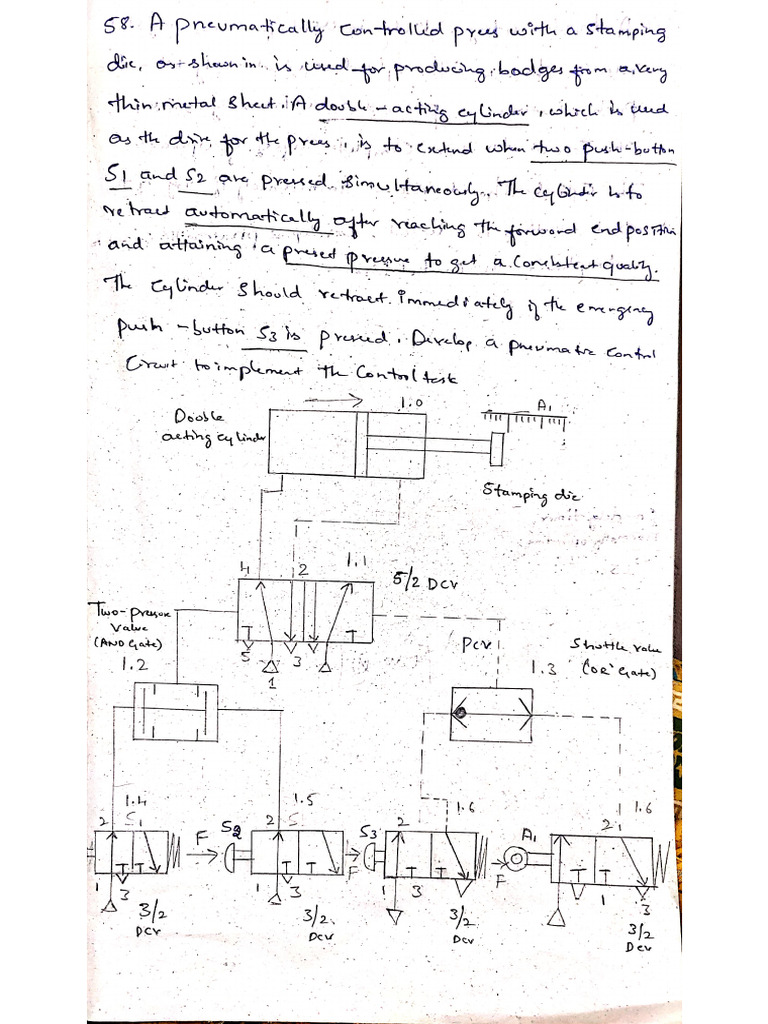 58. A pneumatically controlled press with a stamping
die, as shown in is used for producing badges from a very
thin metal sheet. A double-acting cylinder, which is used
as the drive for the press, is to extend when two push-button
S1 and S2 are pressed simultaneously. The cylinder is to
retract automatically after reaching the forward end position
and attaining a preset pressure to get a consistent quality.
The cylinder should retract immediately if the emergency
push-button S3 is pressed. Develop a pneumatic control
circuit to implement the control task
1.0
A1
Double
acting cylinder
Stamping die
4 2 1.1
5/2 DCV
Two-pressure
valve
(AND Gate)
1.2
5 3
1
PCV
Shuttle valve
1.3 (OR Gate)
1.4
2 S1
1 3
3/2
DCV
1.5
F S2 2 S
1 3
3/2
DCV
1.6
S3 2
F
1 3
3/2
DCV
1.6
A1 2
F
1 3
3/2
DCV